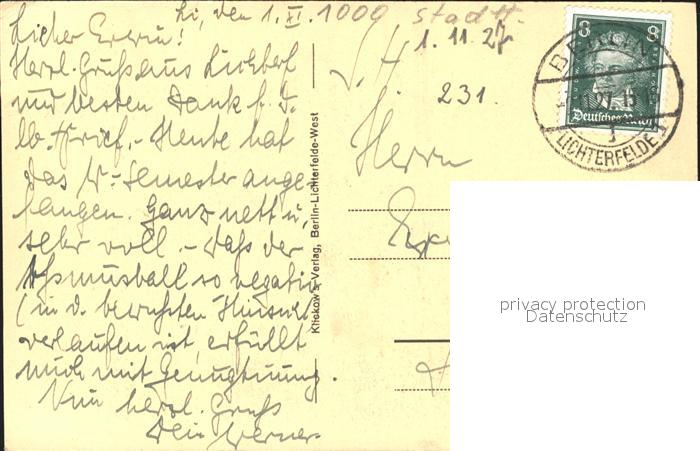 Li, den 1. XI. 1000 Stadt.
Lieber Erwin!
Herzl. Gruß aus Lichterf.
und besten Dank f. D.
lb. Brief. - Heute hat
das W.-Semester ange-
fangen. Ganz nett u.
sehr voll. - Daß der
so negativ
(in d. bewußten Hinsicht)
verlaufen ist erfüllt
mich mit Genugtuung.
Nun herzl. Gruß
Dein Werner.
1. 11. 27
231.
Herrn
Klickow's Verlag, Berlin-Lichterfelde-West
8 8
Deutsches Reich
BERLIN
LICHTERFELDE
1
privacy protection
Datenschutz